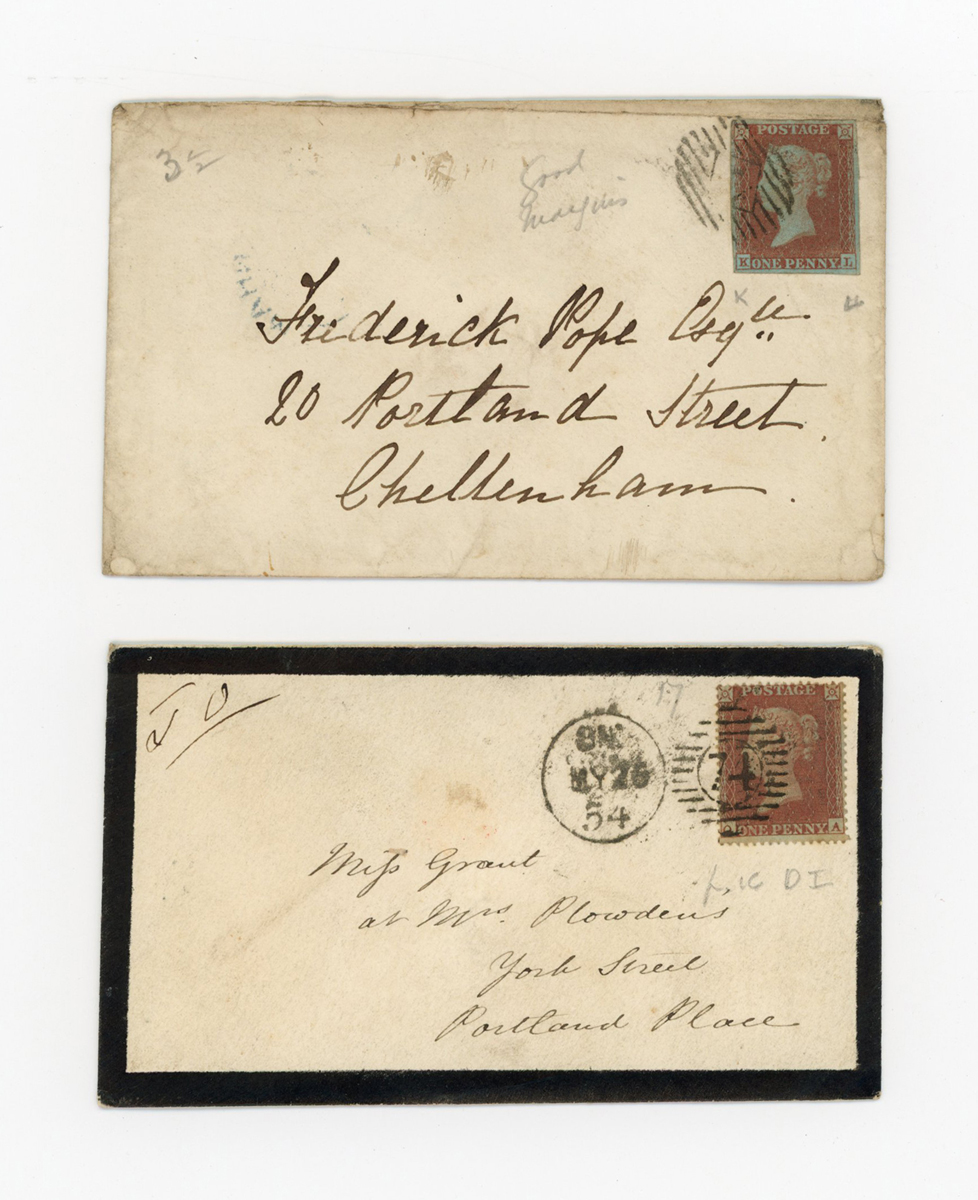 3½
Good
Margins
POSTAGE
K ONE PENNY L
K
Frederick Pope Esqre
20 Portland Street
Cheltenham.
POSTAGE
ONE PENNY A
MY 26
54
Miss Grant
at Mrs. Plowdens
York Street
Portland Place